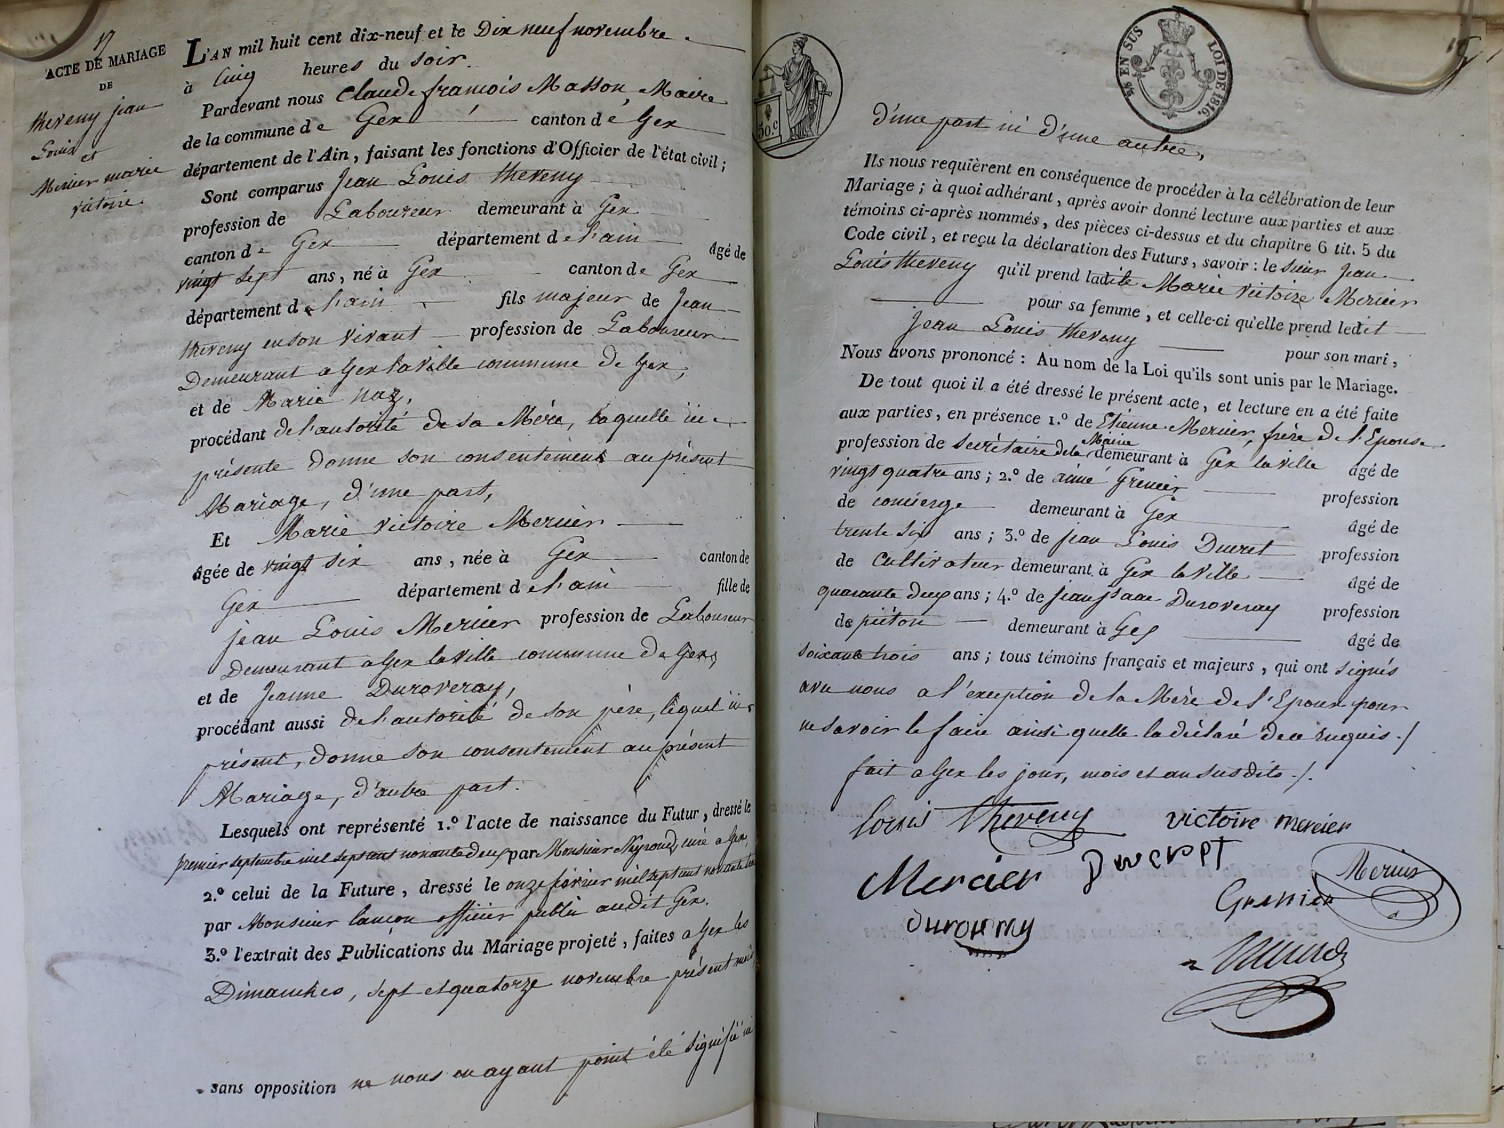 17
ACTE DE MARIAGE
DE
theveny jean
Louis
et
Mercier marie
victoire.
L'AN mil huit cent dix-neuf et le Dix neuf novembre
à Cinq heures du soir.
Pardevant nous Claude francois Masson, Maire
de la commune de Gex canton de Gex
département de l'Ain, faisant les fonctions d'Officier de l'état civil;
Sont comparus Jean Louis theveny
profession de Laboureur demeurant à Gex
canton de Gex département de l'ain âgé de
vingt sept ans, né à Gex canton de Gex
département de l'ain fils majeur de Jean
theveny en son vivant profession de Laboureur
Demeurant a Gex la ville commune de Gex,
et de Marie Naz,
procédant de l'autorité de sa Mère, laquelle ici
présente donne son consentement au présent
Mariage, d'une part,
Et Marie victoire Mercier
âgée de vingt six ans, née à Gex canton de
Gex département de l'ain fille de
jean Louis Mercier profession de Laboureur
Demeurant a Gex la ville commune de Gex,
et de Jeanne Duroveray,
procédant aussi de l'autorité de son père, lequel ici
présent, donne son consentement au présent
Mariage, d'autre part.
Lesquels ont représenté 1.º l'acte de naissance du Futur, dressé le
premier septembre mil sept cent nonante deux par Monsieur Neyroud, curé a Gex,
2.º celui de la Future, dressé le onze février mil sept cent nonante trois
par Monsieur lançon officier public audit Gex.
3.º l'extrait des Publications du Mariage projeté, faites a Gex les
Dimanches, sept et quatorze novembre présent mois
sans opposition ne nous en ayant point été signifié ni
EN SUS
LOI DE 1816.
50.c
d'une part ni d'une autre,
Ils nous requièrent en conséquence de procéder à la célébration de leur
Mariage; à quoi adhérant, après avoir donné lecture aux parties et aux
témoins ci-après nommés, des pièces ci-dessus et du chapitre 6 tit. 5 du
Code civil, et reçu la déclaration des Futurs, savoir: le sieur Jean
Louis theveny qu'il prend ladite Marie victoire Mercier
pour sa femme, et celle-ci qu'elle prend ledit
Jean Louis theveny pour son mari,
Nous avons prononcé: Au nom de la Loi qu'ils sont unis par le Mariage.
De tout quoi il a été dressé le présent acte, et lecture en a été faite
aux parties, en présence 1.º de Etienne Mercier, frère de l'Epouse
profession de secrétaire de la Mairie demeurant à Gex la ville âgé de
vingt quatre ans; 2.º de aimé Grenier profession
de concierge demeurant à Gex âgé de
trente six ans; 3.º de jean Louis Ducret profession
de Cultivateur demeurant à Gex la ville âgé de
quarante deux ans; 4.º de jean isaac Duroveray profession
de piéton demeurant à Gex âgé de
soixante trois ans; tous témoins français et majeurs, qui ont signés
avec nous a l'exception de la Mère de l'Epoux pour
ne savoir le faire ainsi quelle la déclaré de ce requis./
fait a Gex les jour, mois et an susdits./.
Louis Theveny victoire mercier
Mercier Ducret Mercier
Grenier
duroveray